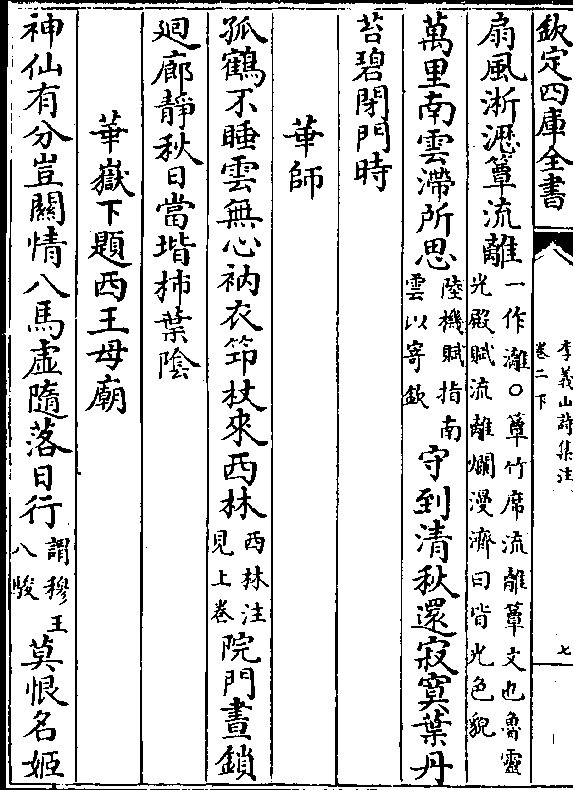 欽定四庫全書
李義山詩集注
卷二下
七
扇風淅瀝簟流離一作灕○簟竹席流離簟文也魯靈
光殿賦流離爛漫濟曰皆光色貌
萬里南雲滯所思陸機賦指南
雲以寄欽守到清秋還寂寞葉丹
苔碧閉門時
華師
孤鶴不睡雲無心衲衣筇杖來西林西林注
見上卷院門晝鎖
廻廊靜秋日當堦柿葉陰
華嶽下題西王母廟
神仙有分豈關情八馬虛隨落日行謂穆王
八駿莫恨名姬